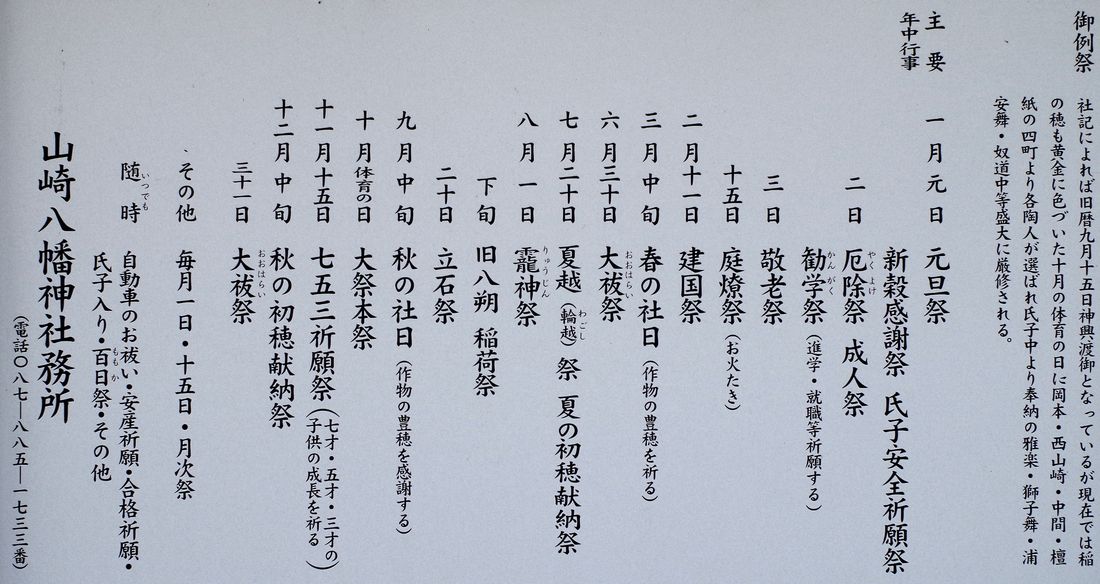 御例祭 社記によれば旧暦九月十五日神輿渡御となっているが現在では稲
の穂も黄金に色づいた十月の体育の日に岡本・西山崎・中間・檀
紙の四町より各陶人が選ばれ氏子中より奉納の雅楽・獅子舞・浦
安舞・奴道中等盛大に厳修される。
主要
年中行事
一月元日 元旦祭
新穀感謝祭 氏子安全祈願祭
二日 厄除祭 成人祭
やくよけ
三日 勧学祭(進学・就職等祈願する)
かんがく
敬老祭
十五日 庭燎祭(お火たき)
二月十一日 建国祭
三月中旬 春の社日(作物の豊穂を祈る)
六月三十日 大祓祭
おおはらい
七月二十日 夏越(輪越)祭 夏の初穂献納祭
わごし
八月一日 龗神祭
りゅうじん
下旬 旧八朔 稲荷祭
二十日 立石祭
九月中旬 秋の社日(作物の豊穂を感謝する)
十月体育の日 大祭本祭
十一月十五日 七五三祈願祭(七才・五才・三才の
子供の成長を祈る)
十二月中旬 秋の初穂献納祭
三十一日 大祓祭
おおはらい
その他 毎月一日・十五日・月次祭
随時 自動車のお祓い・安産祈願・合格祈願・
いつでも
氏子入り・百日祭・その他
ももか
山崎八幡神社務所
(電話〇八七―八八五―一七三三番)